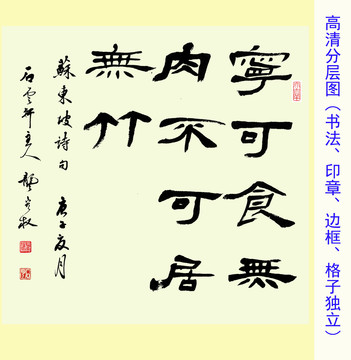 高清分层图（书法、印章、边框、格子独立）
寧可食無
肉不可居
無竹
蘇東坡詩句 庚子夏月
石雲軒主人